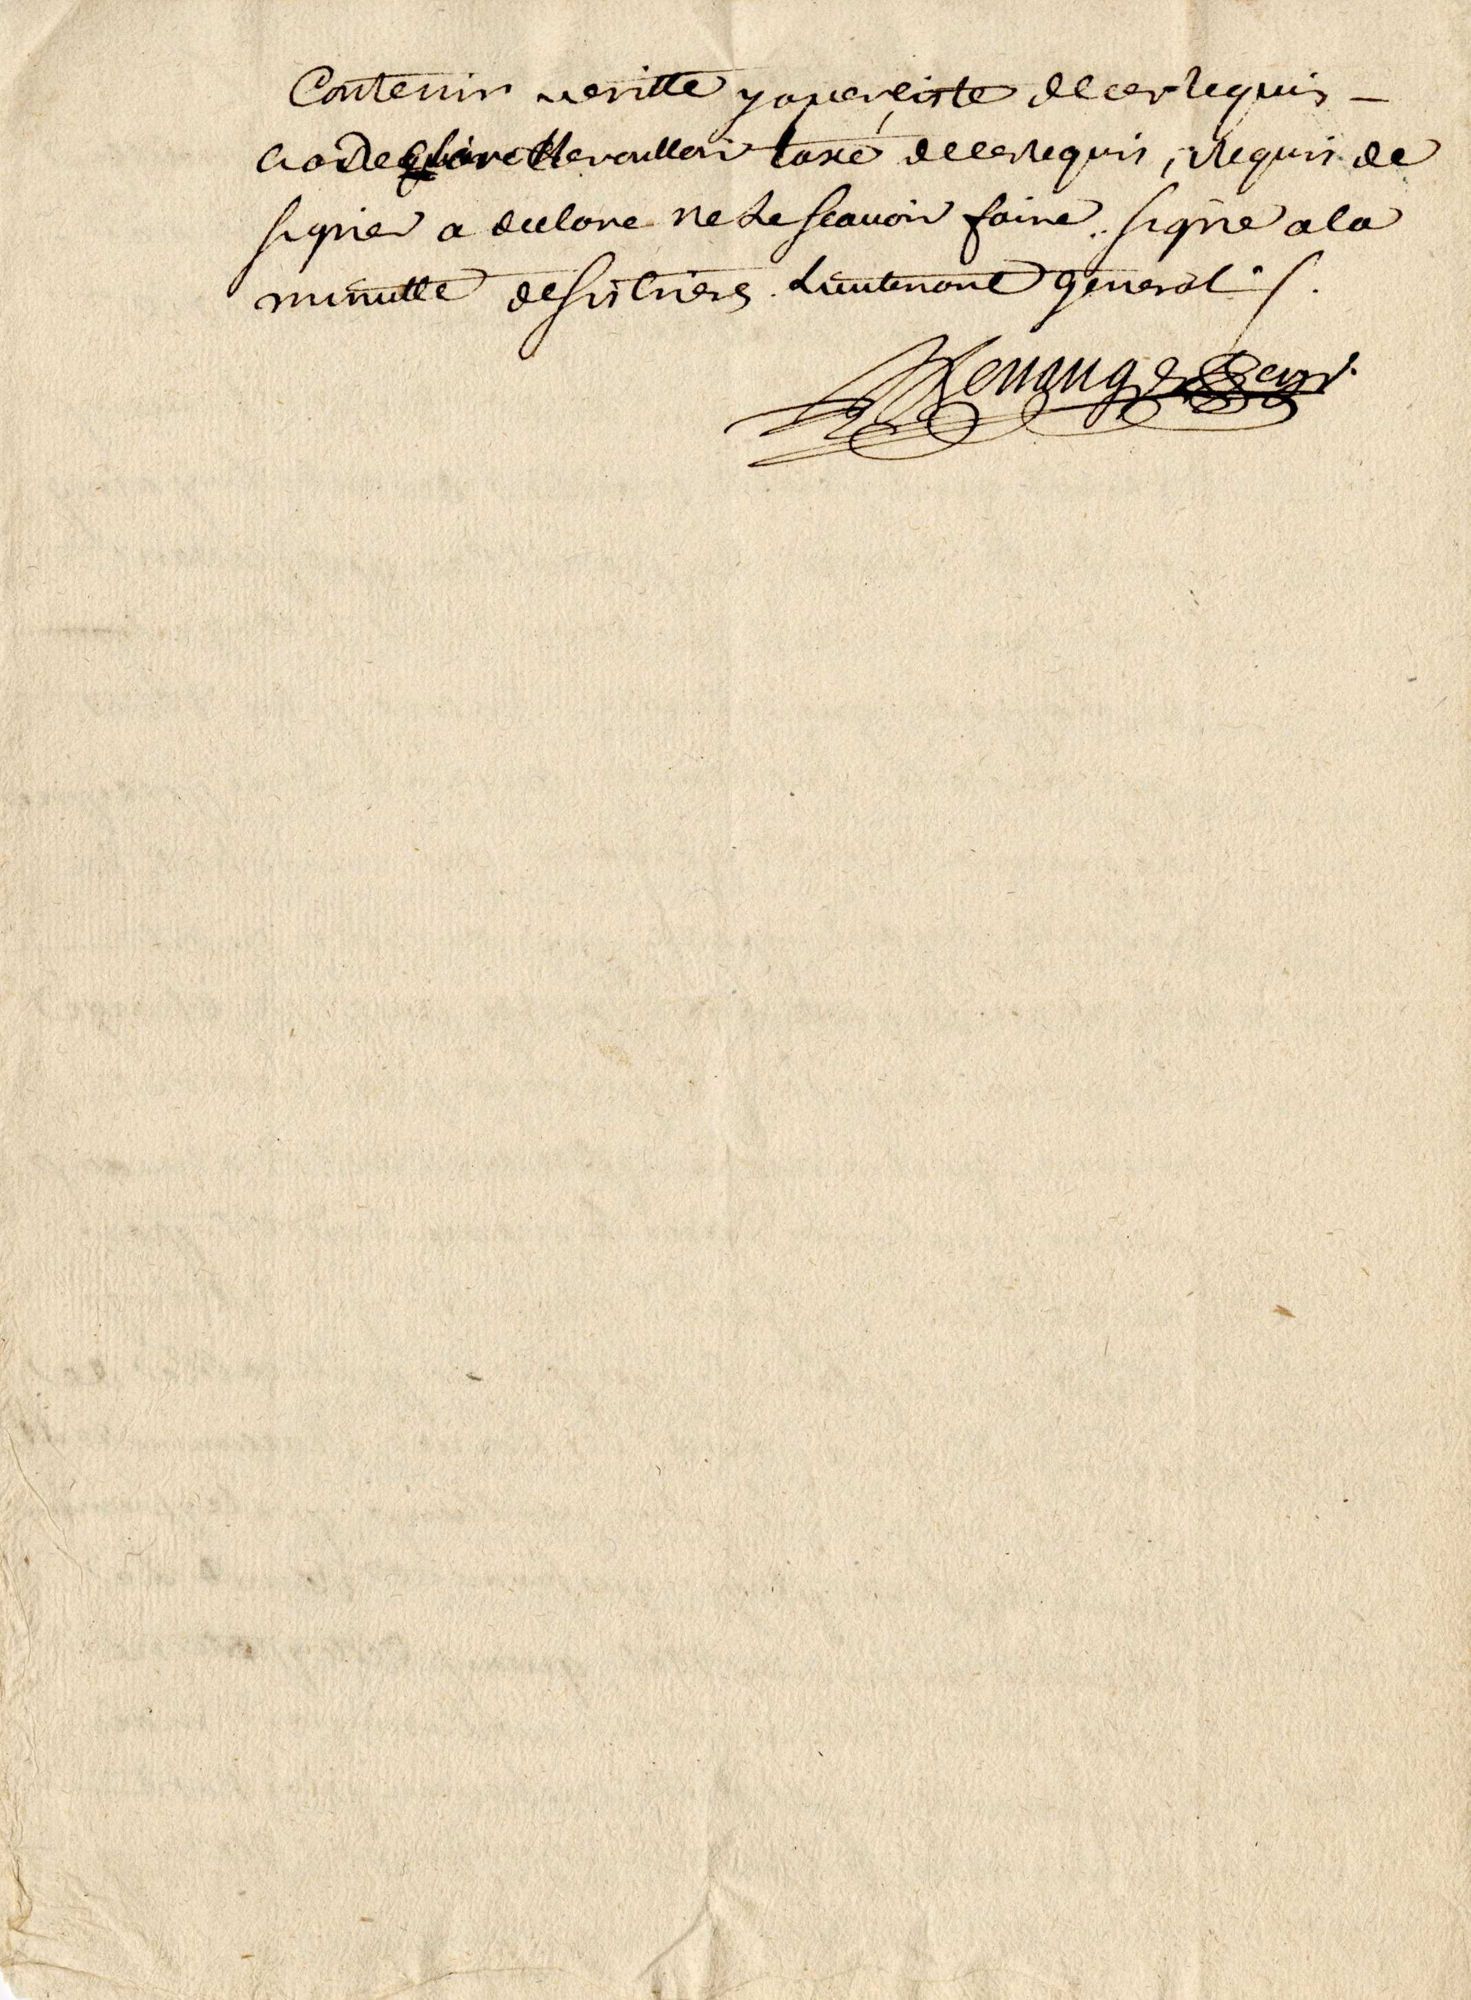 Contenir veritte y a perciste de ce requis –
a declaré vouloir taxe de ce requis, requis de
signer a declare ne le scavoir faire. signe a la
minutte desistrieres Lieutenant general ./.